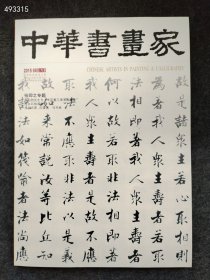 493315
中華書畫家
CHINESE ARTISTS IN PAINTING & CALLIGRAPHY
2015
故是諸衆生若心取相則
為著我人衆生壽者
法相即著我人衆生壽者
何以故若取非法相即著
我人衆生壽者是故不
應取法不應取非法以是義
故如来常說汝等比丘知
我說法如筏喻者法